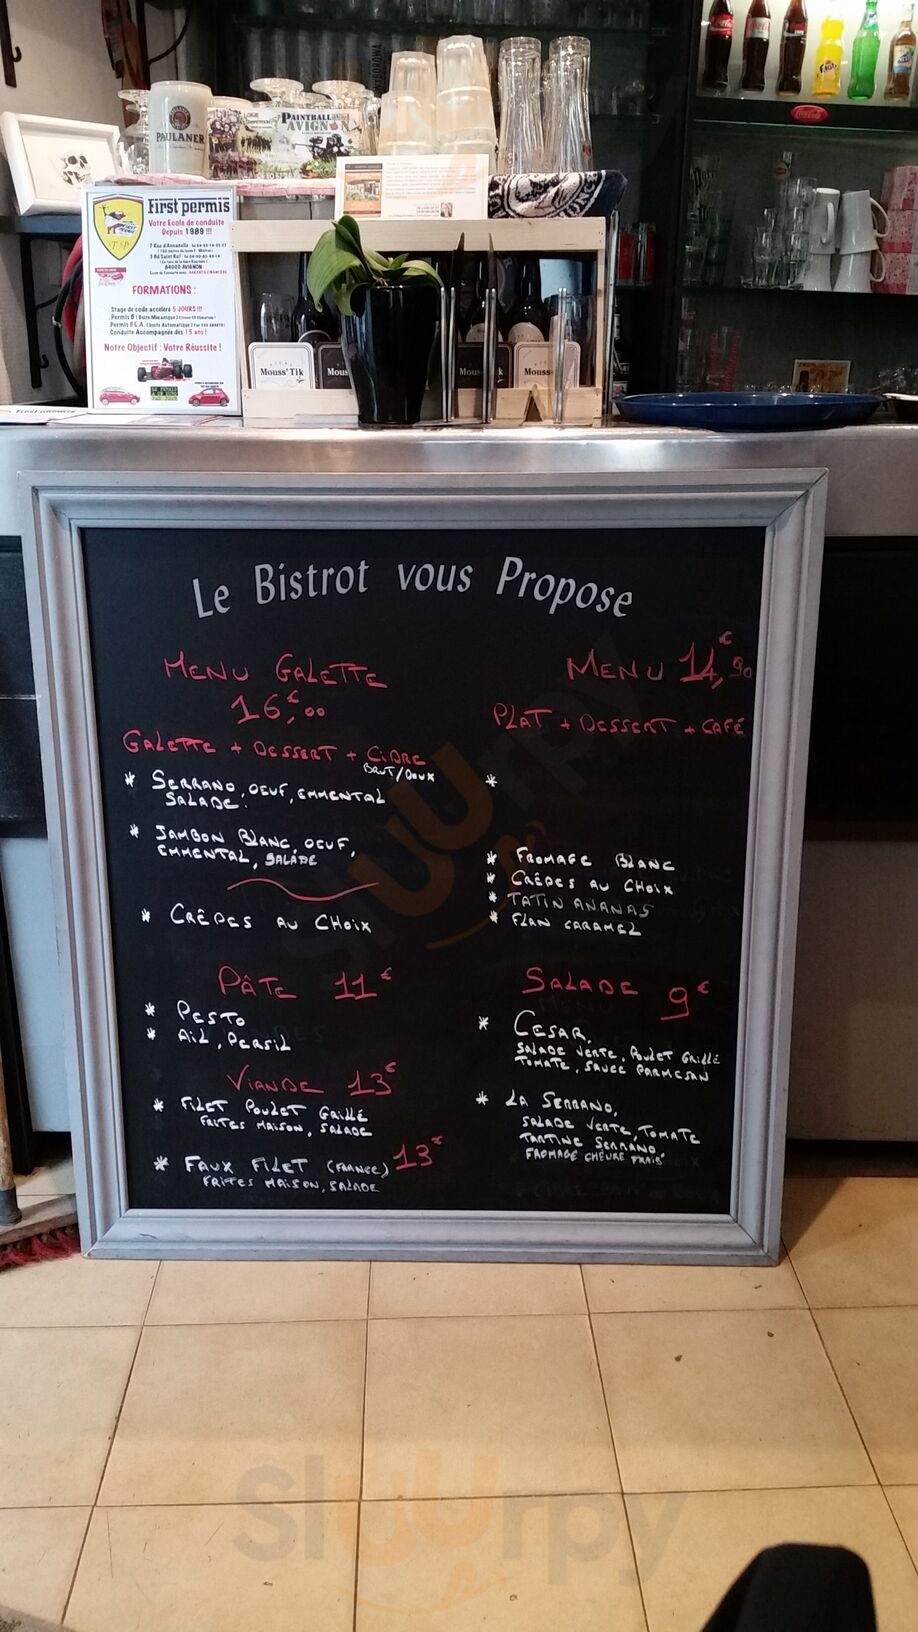 PAULANER
PAINTBALL
AVIGNON
First permis
Votre Ecole de conduite
Depuis 1989 !!!
84000 AVIGNON
FORMATIONS :
Stage de code accéléré 5 JOURS !!!
Conduite Accompagnée dès 15 ans !
Notre Objectif : Votre Réussite !
Mouss'Tik
Coca-Cola
Le Bistrot vous Propose
MENU GALETTE
16,00€
GALETTE + DESSERT + CIDRE
BRUT/DOUX
* SERRANO, OEUF, EMMENTAL
SALADE.
* JAMBON BLANC, OEUF,
EMMENTAL, SALADE
* CRÊPES AU CHOIX
PÂTE 11€
* PESTO
* AIL, PERSIL
VIANDE 13€
* FILET POULET GRILLÉ
FRITES MAISON, SALADE
* FAUX FILET (FRANCE) 13€
FRITES MAISON, SALADE
MENU 14,90€
PLAT + DESSERT + CAFÉ
*
* FROMAGE BLANC
* CRÊPES AU CHOIX
* TATIN ANANAS
* FLAN CARAMEL
SALADE 9€
* CESAR,
SALADE VERTE, POULET GRILLÉ
TOMATE, SAUCE PARMESAN
* LA SERRANO,
SALADE VERTE, TOMATE
TARTINE SERRANO
FROMAGE CHÈVRE FRAIS
Sluurpy
Sluurpy